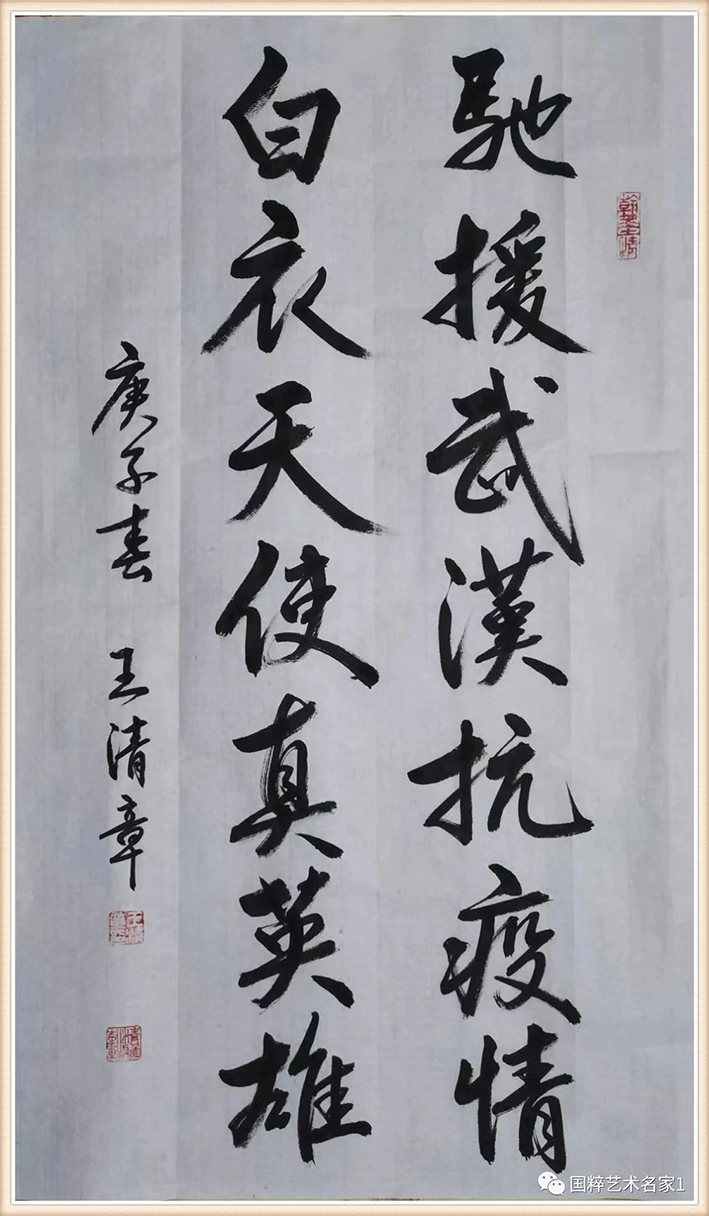 馳援武漢抗疫情
白衣天使真英雄
庚子春 王清章
国粹艺术名家1